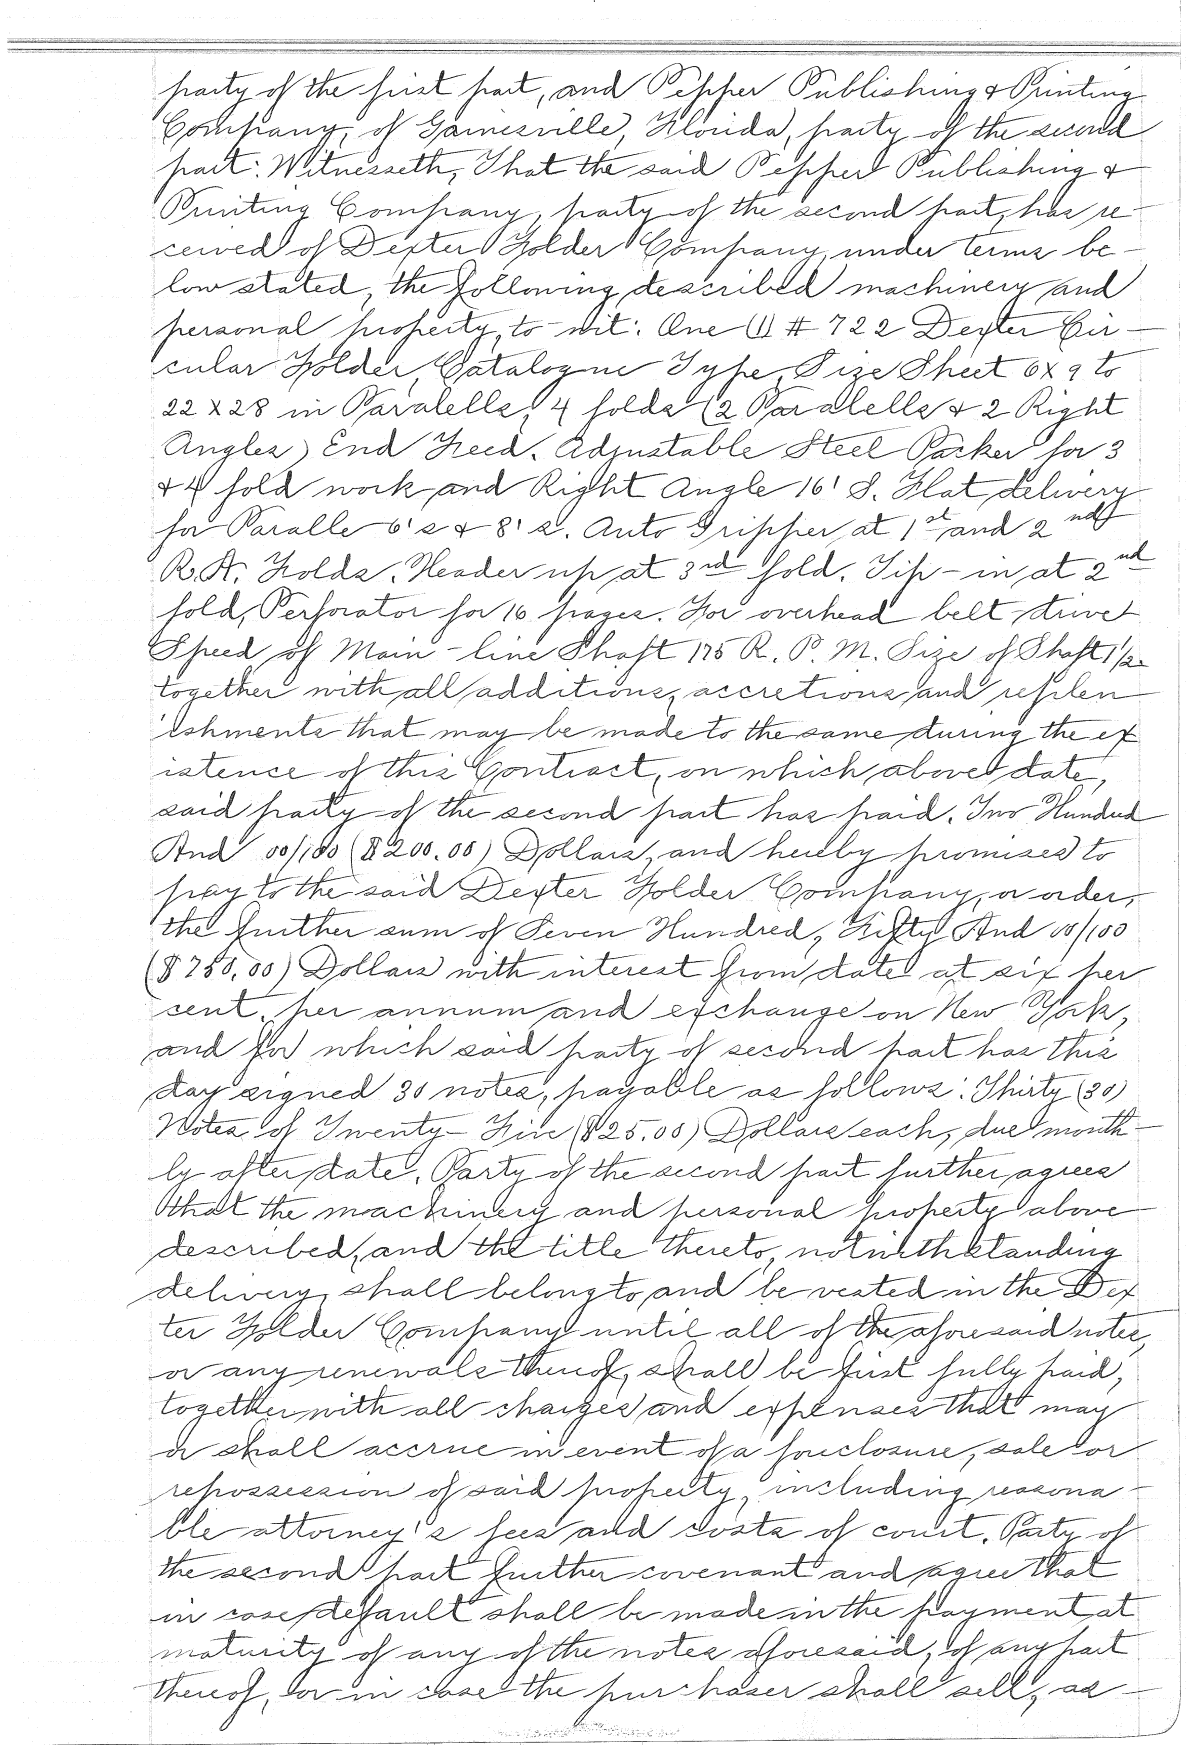 party of the first part, and Pepper Publishing & Printing
Company, of Gainesville, Florida, party of the second
part: Witnesseth, That the said Pepper Publishing &
Printing Company, party of the second part, has re-
ceived of Dexter Folder Company, under terms be-
low stated, the following described machinery and
personal property, to-wit: One (1) # 722 Dexter Cir-
cular Folder, Catalogue Type, Size Sheet 6x9 to
22 x 28 in Paralells, 4 folds (2 Paralells & 2 Right
Angles) End Feed. Adjustable Steel Packer for 3
& 4 fold work and Right Angle 16's. Flat delivery
for Paralle 6's & 8's. Auto Gripper at 1st and 2nd
R.A. Folds. Header up at 3rd fold. Tip-in at 2nd
fold, Perforator for 16 pages. For overhead belt drive
Speed of Main-line Shaft 175 R.P.M. Size of Shaft 1 1/2-
together with all additions, accretions and replen
ishments that may be made to the same during the ex
istence of this Contract, on which above date,
said party of the second part has paid. Two Hundred
And 00/100 ($200.00) Dollars, and hereby promises to
pay to the said Dexter Folder Company, or order,
the further sum of Seven Hundred, Fifty And 00/100
($750.00) Dollars with interest from date at six per
cent. per annum and exchange on New York,
and for which said party of second part has this
day signed 30 notes, payable as follows: Thirty (30)
Notes of Twenty-Five ($25.00) Dollars each, due month-
ly after date. Party of the second part further agrees
that the machinery and personal property above
described, and the title thereto, notwithstanding
delivery, shall belong to and be vested in the Dex
ter Folder Company until all of the aforesaid notes,
or any renewals thereof, shall be first fully paid,
together with all charges and expenses that may
or shall accrue in event of a foreclosure, sale or
repossession of said property, including reasona-
ble attorney's fees and costs of court. Party of
the second part further covenant and agree that
in case default shall be made in the payment at
maturity of any of the notes aforesaid, of any part
thereof, or in case the purchaser shall sell, as-